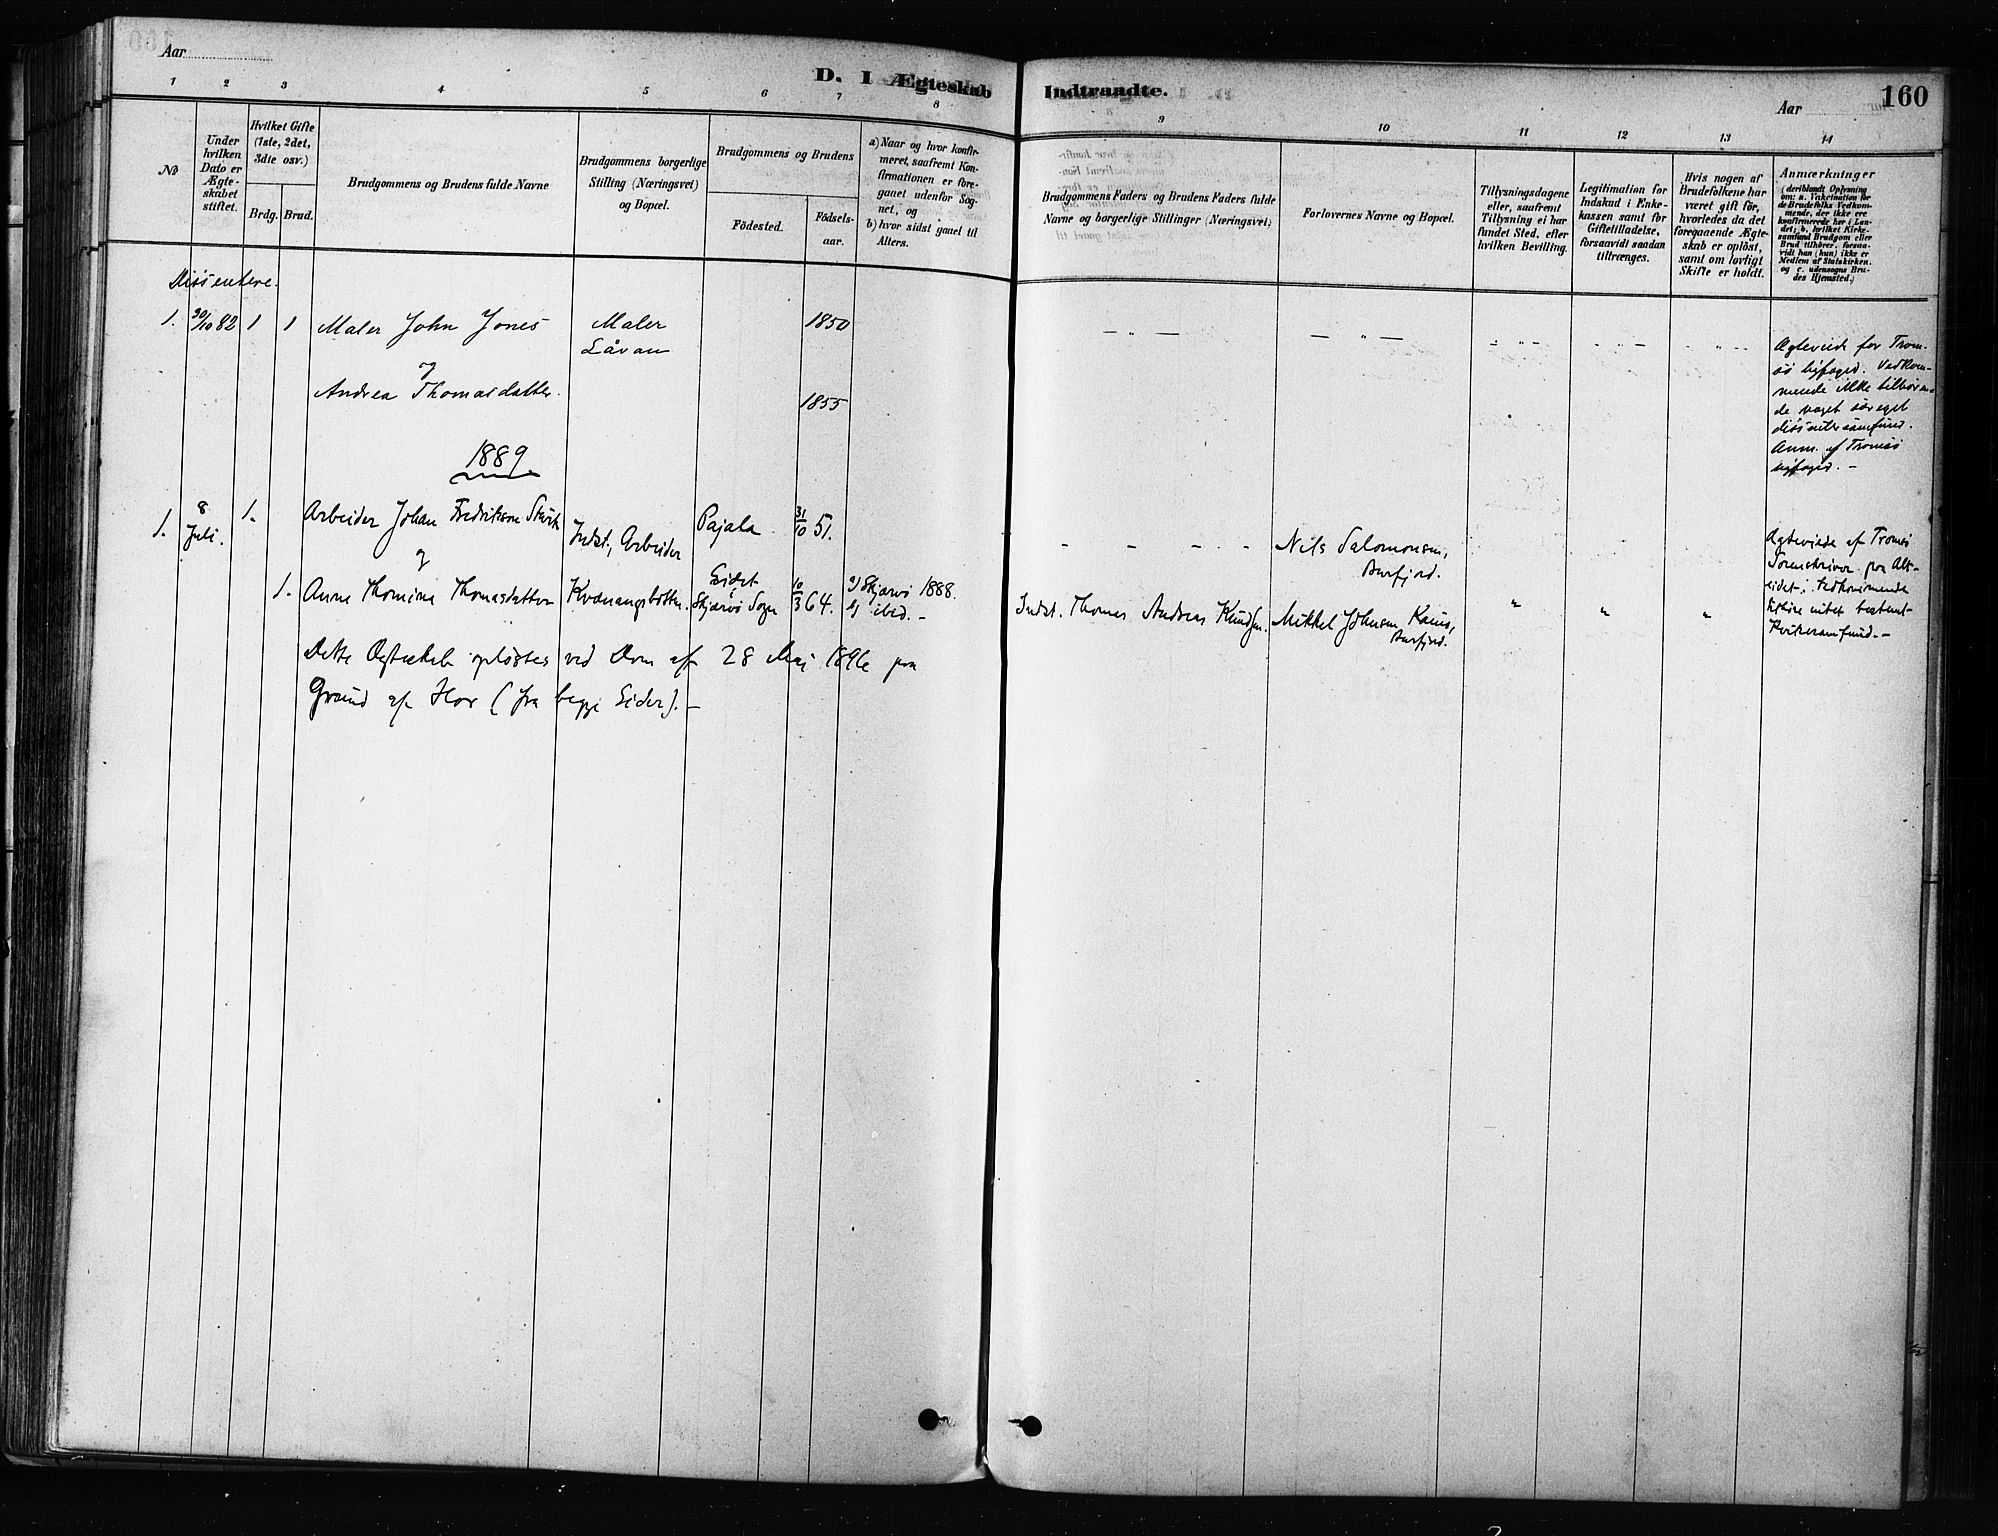 Aar
D. I Ægteskab Indtraadte.
Aar
160
1 2 3 4 5 6 7 8 9 10 11 12 13 14
No
Under hvilken Dato er Ægteskabet stiftet.
Hvilket Gifte (1ste, 2det, 3die osv.)
Brdg. Brud.
Brudgommens og Brudens fulde Navne
Brudgommens borgerlige Stilling (Næringsvei) og Bopæl.
Brudgommens og Brudens
Födested.
Födsels-aar.
a) Naar og hvor konfirmeret, saafremt Konfirmationen er foregaaet udenfor Sognet, og
b) hvor sidst gaaet til Alters.
Brudgommens Faders og Brudens Faders fulde Navne og borgerlige Stillinger (Næringsvei)
Forlovernes Navne og Bopæl.
Tillysningsdagene eller, saafremt Tillysning ei har fundet Sted, efter hvilken Bevilling.
Legitimation for Indskud i Enkekassen samt for Giftetilladelse, forsaavidt saadan tiltrænges.
Hvis nogen af Brudefolkene har været gift för, hvorledes da det foregaaende Ægteskab er oplöst, samt om lovligt Skifte er holdt.
Anmærkninger
(deriblandt Oplysning om: a. Vakcination for de Brudefolks Vedkommende, der ikke ere konfirmerede her i Landet; b. hvilket Kirkesamfund Brudgom eller Brud tilhörer, forsaavidt han (hun) ikke er Medlem af Statskirken, og c. udensogns Brudes Hjemsted.)
Dissentere.
1. 30/10 82 1 1 Maler John Jones Maler 1850
Låvan
og
Andrea Thomasdatter. 1855
Ægteviede for Trom-
sö byfoged. Vedkom-
mende ikke tilhören-
de noget særeget
dissentersamfund.
Anm. af Tromsö
byfoged. -
1889
1. 8 Juli. 1. Arbeider Johan Fredriksen Indst., Arbeider Pajala 31/10 51. Nils Salomonsen,
Burfjord.
og
1. Anne Thomine Thomasdatter Kvænangsbotten. Eidet Skjærvö Sogn 10/3 64. a) Skjærvö 1888.
b) ibid. -
Indst. Thomas Andreas Knudsen. Mikkel Johnsen
Burfjord.
Ægteviede af Tromsö
Sorenskriver paa Alt-
eidet. Vedkommende
tilhöre intet bestemt
Kirkesamfund. -
Dette Ægteskab oplöstes ved Dom af 28 Mai 1896 paa
Grund af Hor (fra begge Sider). -